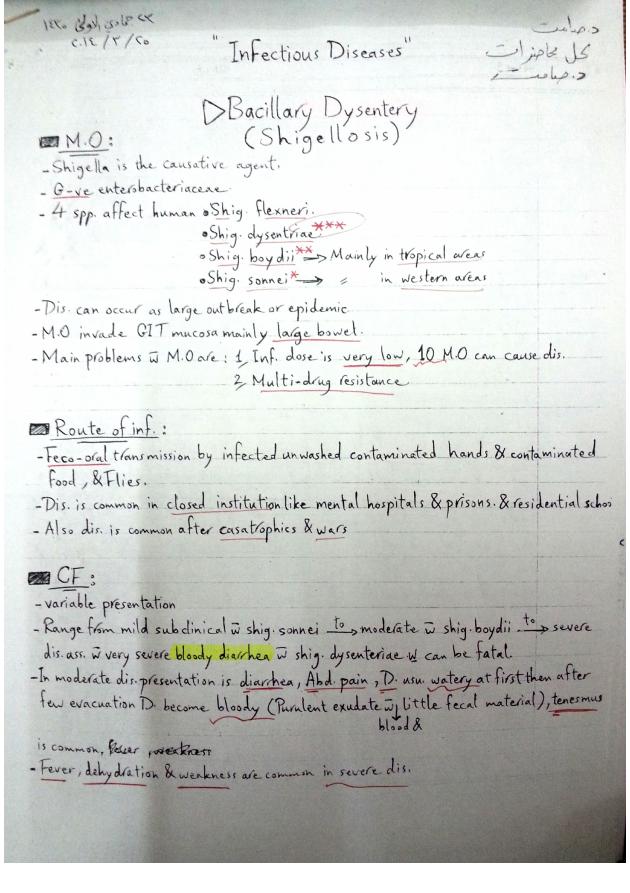 ٢٢ جمادي الاولى ١٤٣٠
٢٠١٤/٣/٢٠
د. صامت
كل محاضرات
د. صامت
"Infectious Diseases"
Bacillary Dysentery
(Shigellosis)
M.O:
- Shigella is the causative agent.
- G-ve enterobacteriaceae.
- 4 spp. affect human • Shig. flexneri.
• Shig. dysentriae ***
• Shig. boydii ** → Mainly in tropical areas
• Shig. sonnei * → = in western areas
- Dis. can occur as large outbreak or epidemic.
- M.O invade GIT mucosa mainly large bowel.
- Main problems w̄ M.O are: 1, Inf. dose is very low, 10 M.O can cause dis.
2, Multi-drug resistance
Route of inf.:
- Feco-oral transmission by infected unwashed contaminated hands & contaminated
food, & Flies.
- Dis. is common in closed institution like mental hospitals & prisons. & residential schoo
- Also dis. is common after casatrophics & wars
CF:
- variable presentation
- Range from mild subclinical w̄ shig. sonnei to → moderate w̄ shig. boydii to → severe
dis. ass. w̄ very severe bloody diarrhea w̄ shig. dysenteriae w can be fatal.
- In moderate dis. presentation is diarrhea, Abd. pain, D. usu. watery at first then after
few evacuation D. become bloody (Purulent exudate w̄ little fecal material), tenesmus
blood &
is common,
- Fever, dehydration & weakness are common in severe dis.